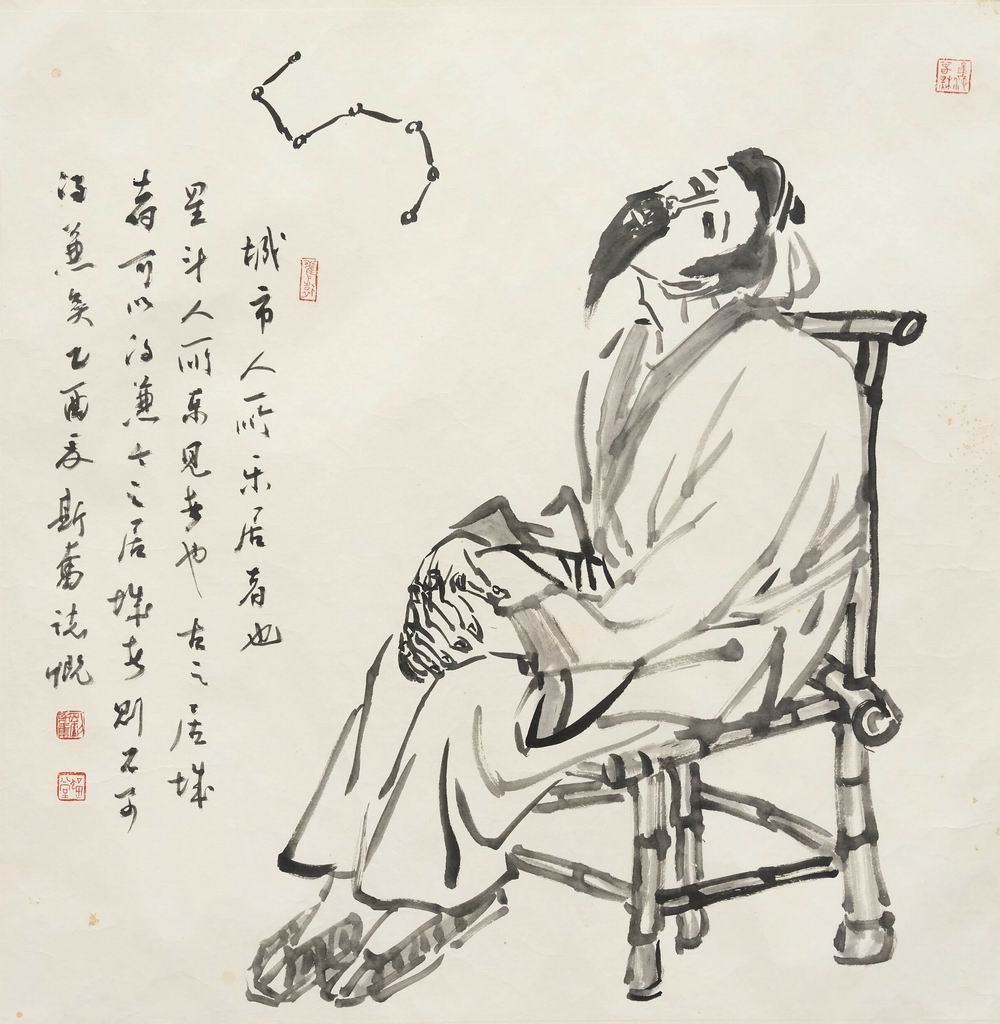 城市人所乐居者也
星斗人所乐见者也古之居城
者可以得兼今之居城者则不可
得兼矣乙酉夏斯奮誌慨